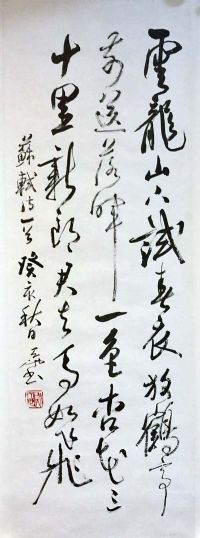 雲龍山下試春衣放鶴亭
前送落暉一色杏花三
十里新郎君去馬如飛
蘇軾詩一首 癸亥秋日